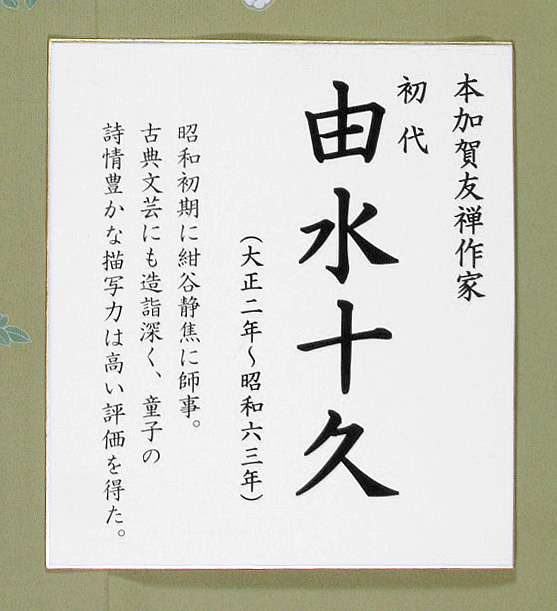 本加賀友禅作家
初代
由水十久
（大正二年～昭和六三年）
昭和初期に紺谷静焦に師事。
古典文芸にも造詣深く、童子の
詩情豊かな描写力は高い評価を得た。